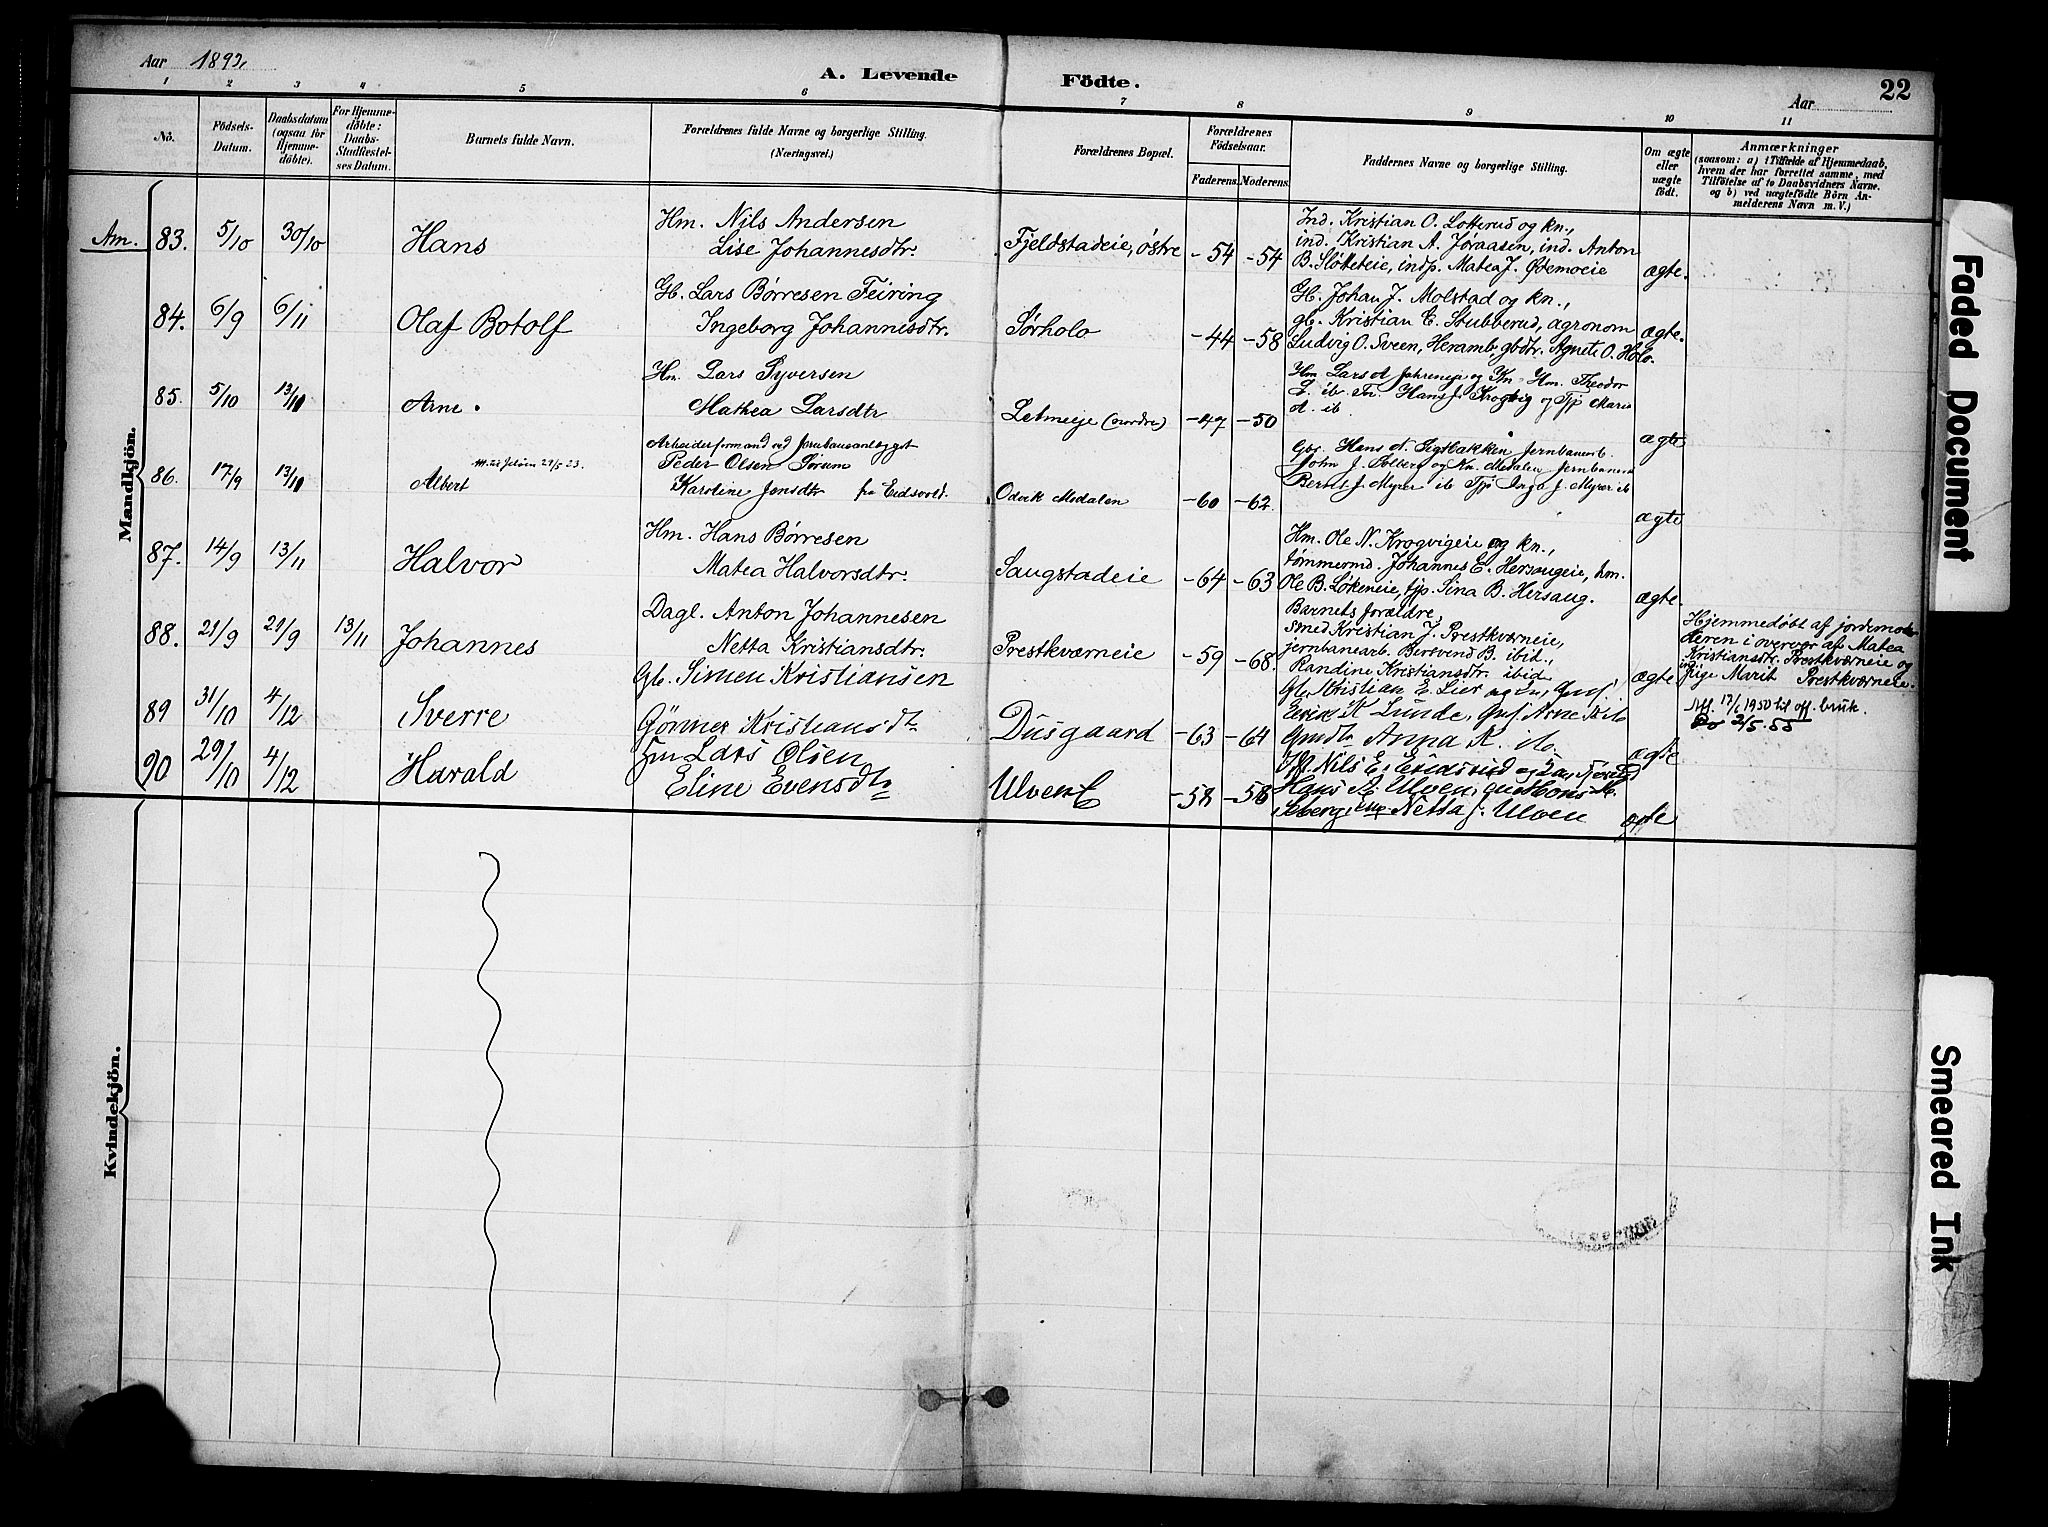 Aar 1892.
A. Levende Födte.
Aar
22
1 2 3 4 5 6 7 8 9 10 11
No.
Födsels-Datum.
Daabsdatum (ogsaa for Hjemme-döbte).
For Hjemme-döbte: Daabs-Stadfæstel-ses Datum.
Barnets fulde Navn.
Forældrenes fulde Navne og borgerlige Stilling.
(Næringsvei.)
Forældrenes Bopæl.
Forældrenes Födselsaar.
Faderens. Moderens.
Faddernes Navne og borgerlige Stilling.
Om ægte eller uægte födt.
Anmærkninger
(saasom: a) i Tilfælde af Hjemmedaab,
hvem der har forrettet samme, med
Tilföielse af to Daabsvidners Navne.
og b) ved uægtefödte Börn An-
melderens Navn m. V.)
Mandkjön.
Am. 83. 5/10 30/10 Hans
Hm. Nils Andersen
Lise Johannesdtr.
Fjeldstadeie, østre -54 -54
Ind. Kristian O. Lotterud og kn.,
ind. Kristian A. Jøraasen, ind. Anton
B. Slötteie, indp. Matea J. Østemoeie
ægte.
84. 6/9 6/11 Olaf Botolf
Gb. Lars Børresen Feiring
Ingeborg Johannesdtr.
Sørholo -44 -58
Gb. Johan J. Molstad og kn.,
gb. Kristian C. Stubberud, agronom
Ludvig O. Sveen, Heramb, gbdtr. Agnete O. Holo.
ægte.
85. 5/10 13/11 Arne.
Hm. Lars Syversen
Mathea Larsdtr
Letmeeje (nordre) -47 -50
Hm Lars A. og Kn Hm. Theodor
L. ib. Hans J. Krogvig og Tjp Marie
A. ib.
ægte
86. 17/9 13/11 Albert
Arbeiderformand ved Jernbaneanlægget
Peder Olsen Sørum
Karoline Jensdtr fra Eidsvold.
Odvik Medalen -60 -62.
Gbr. Hans A. Sigstbakken Jernbanearb.
John J. Solberg og Kn. Medalen Jernbanearb
Bernt J. Myrer ib Tjp Inga J. Myrer ib
ægte
87. 14/9 13/11 Halvor
Hm. Hans Børresen
Matea Halvorsdtr.
Saugstadeie -64 -63
Hm. Ole N. Krogvigeie og kn.,
tømmermd. Johannes E. Hersaugeie, hm.
Ole B. Løkeneie, tjp. Sina B. Hersaug.
ægte.
88. 21/9 21/9 13/11 Johannes
Dagl. Anton Johannesen
Netta Kristiansdtr.
Prestkværneie -59 -68.
Barnets forældre,
smed Kristian J. Prestkværneie,
jernbanearb. Bersvend B. ibid.,
Randine Kristiansdtr. ibid.
ægte
Hjemmedøbt af jordemo-
deren i overvær af Matea
Kristiansdtr. Prestkværneie og
pige Marit Prestkværneie.
89 31/10 4/12 Sverre
Gb. Simen Kristiansen
Gønner Kristiansdtr
Dusgaard -63 -64
Gb. Kristian E. Lier og
Erik K. Lunde, Arne
Anna K. ib.
ægte
Att. 17/6 1950 til off. bruk.
2/5.55
90 29/10 4/12 Harald
Hm Lars Olsen
Eline Evensdtr
Ulven -58 -58
Nils E. Eriksrud og
Hans A. Ulven,
Seberg, Netta J. Ulven
ægte
Kvindekjön.
Faded Document
Smeared Ink